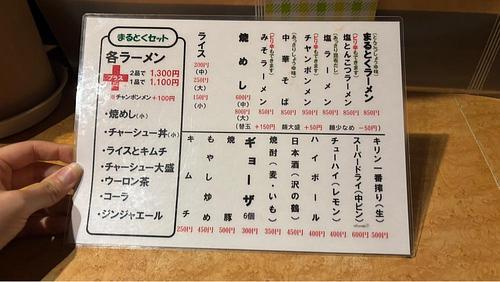 まるとくセット
各ラーメン
プラス
2品で 1,300円
1品で 1,100円
※チャンポンメン+100円
・焼めし(小)
・チャーシュー丼(小)
・ライスとキムチ
・チャーシュー大盛
・ウーロン茶
・コーラ
・ジンジャエール
まるとくラーメン 850円
塩とんこつラーメン 850円
塩ラーメン 850円
(ピリ辛もできます)
チャンポンメン 950円
中華そば 850円
(ピリ辛もできます)
みそラーメン 850円
焼めし
600円(中)
800円(大)
ライス
200円(中)
250円(大)
150円(小)
(替玉 +150円) 麺大盛 +50円) 麺少なめ -50円)
キリン一番搾り(生) 500円
スーパードライ(中ビン) 600円
チューハイ(レモン) 400円
ハイボール 400円
日本酒(沢の鶴) 450円
焼酎(麦・いも) 350円
ギョーザ 6個 300円
焼豚 500円
もやし炒め 450円
キムチ 250円